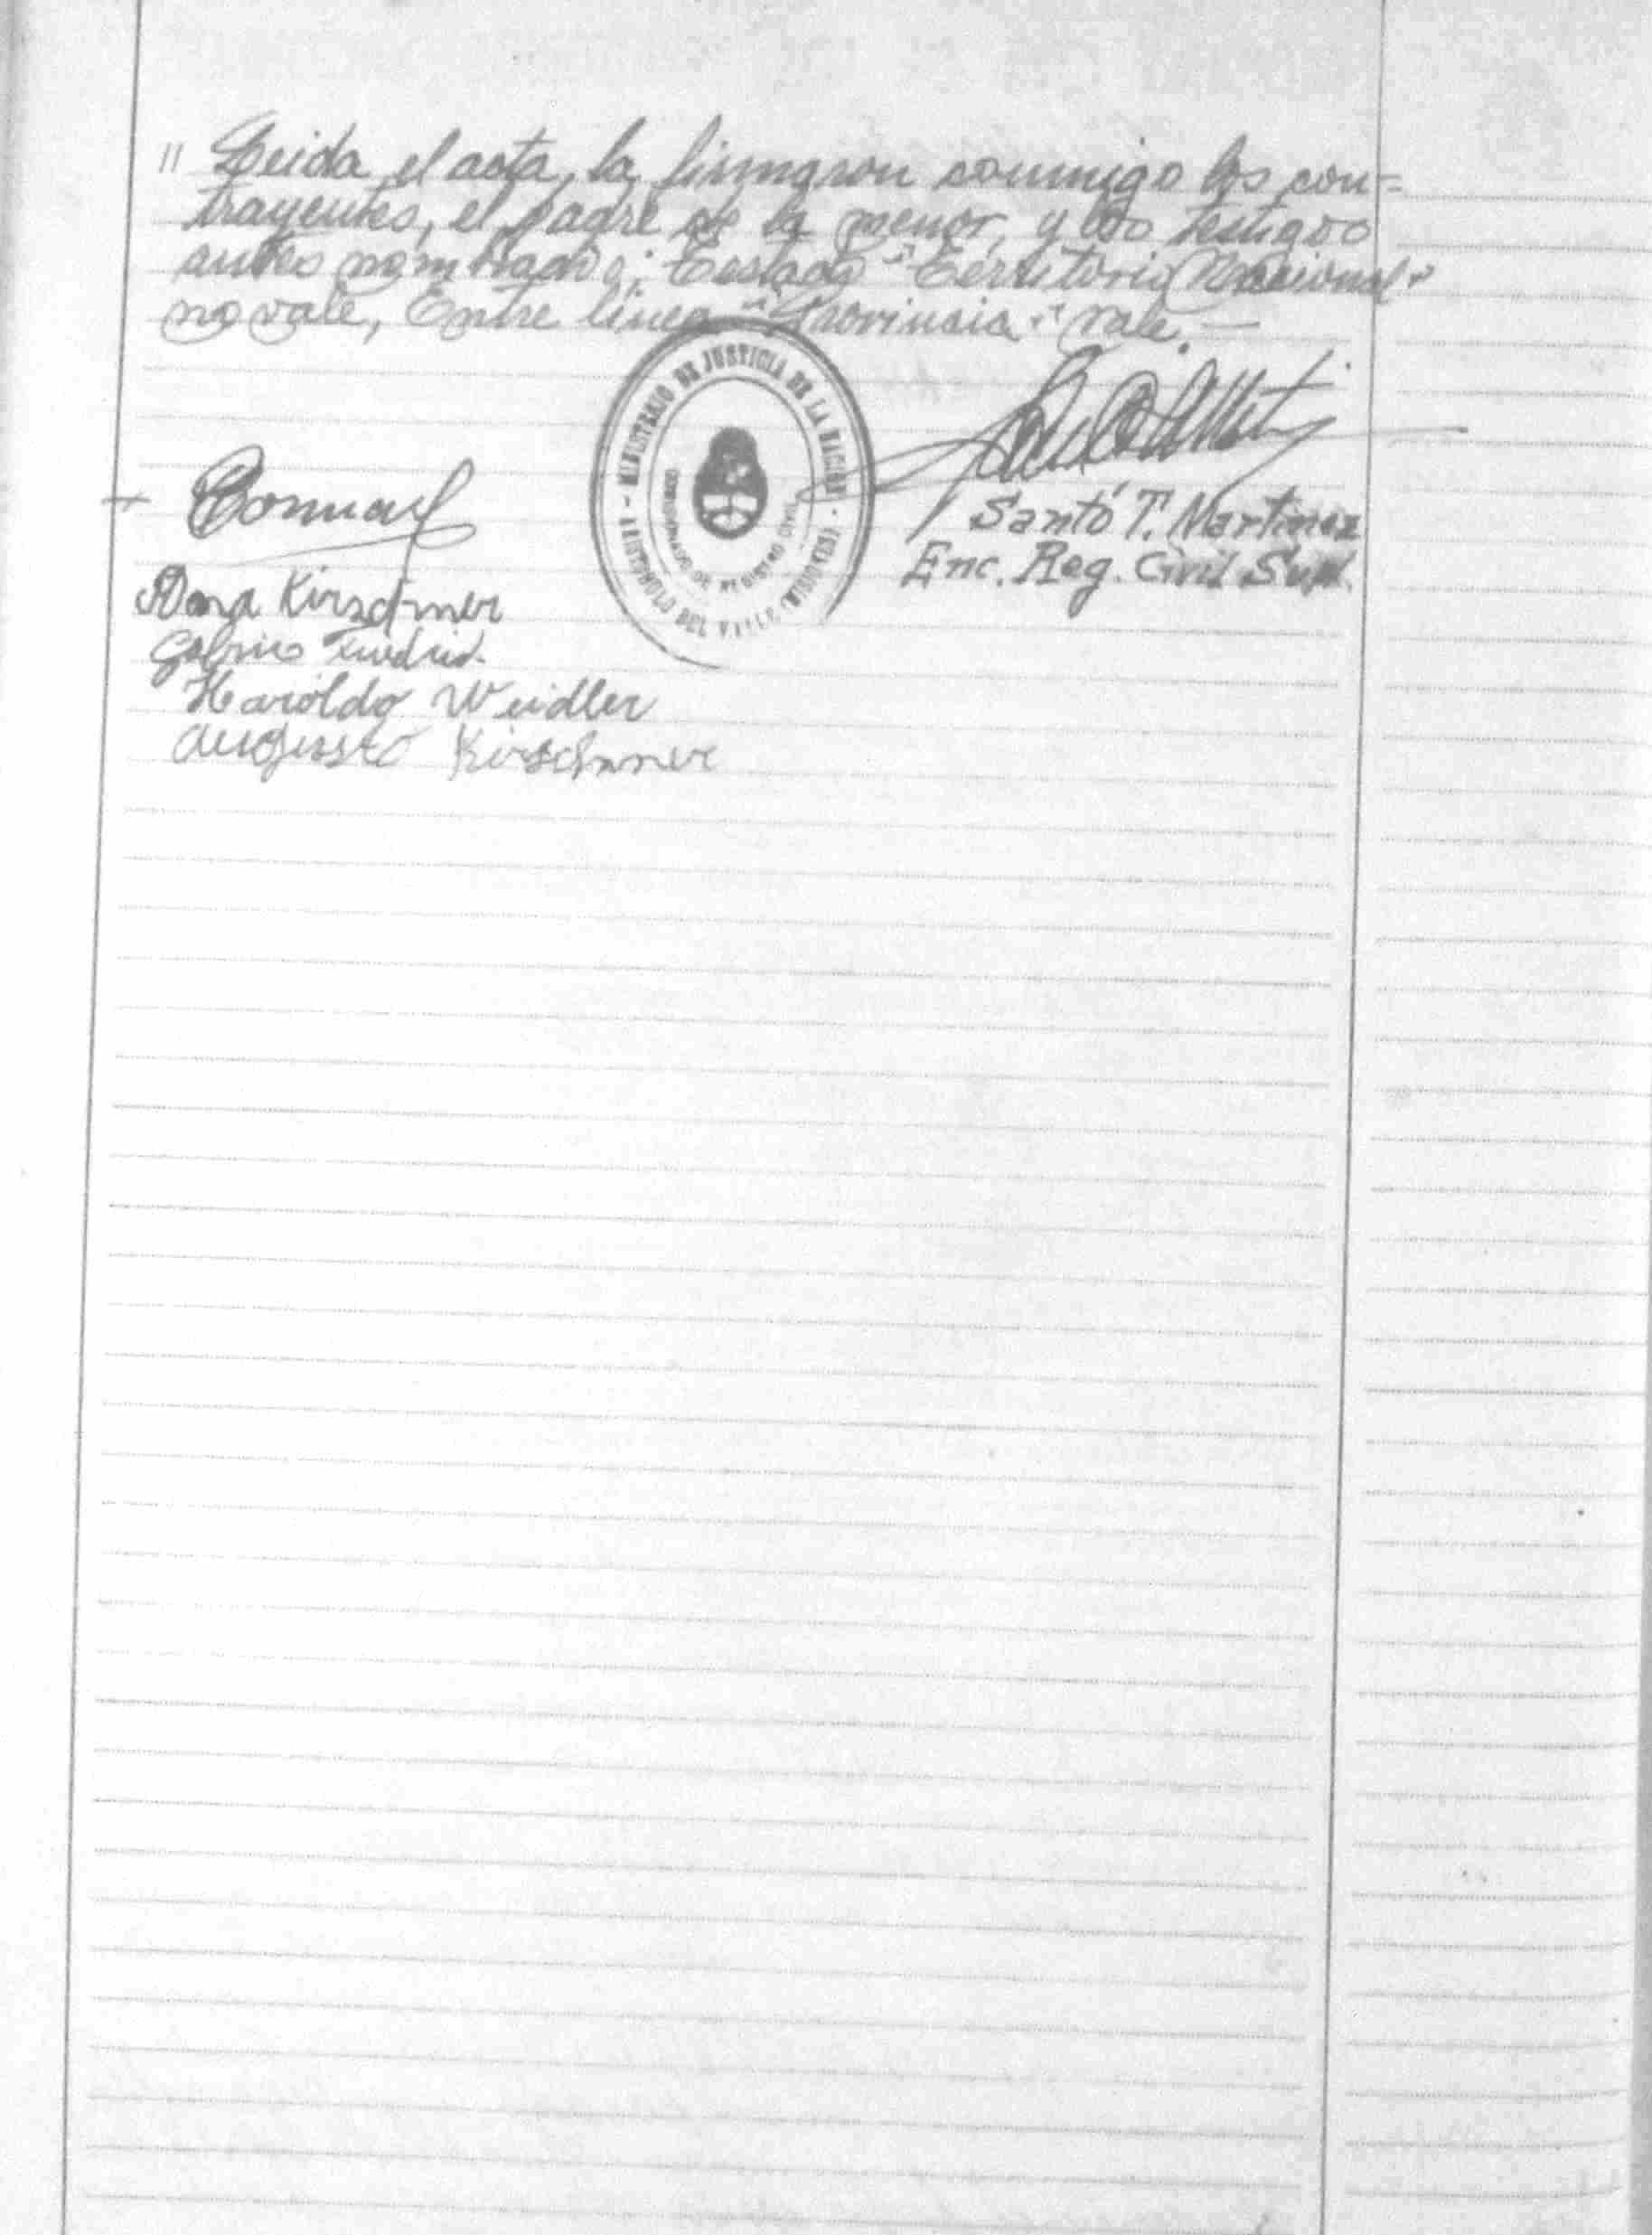 " Leida el acta, la firmaron conmigo los con=
trayentes, el padre de la menor, y los testigos
antes nombrados; Testado "Territorio Nacional"
no vale, Entre linea "Provincia" vale. —
- MINISTERIO DE JUSTICIA DE LA NACION -
ARISTOBULO DEL VALLE (MISIONES)
REGISTRO CIVIL
Santo T. Martinez
Enc. Reg. Civil Supl.
Kirschner
Haroldo Weidler
Augusto Kirschner